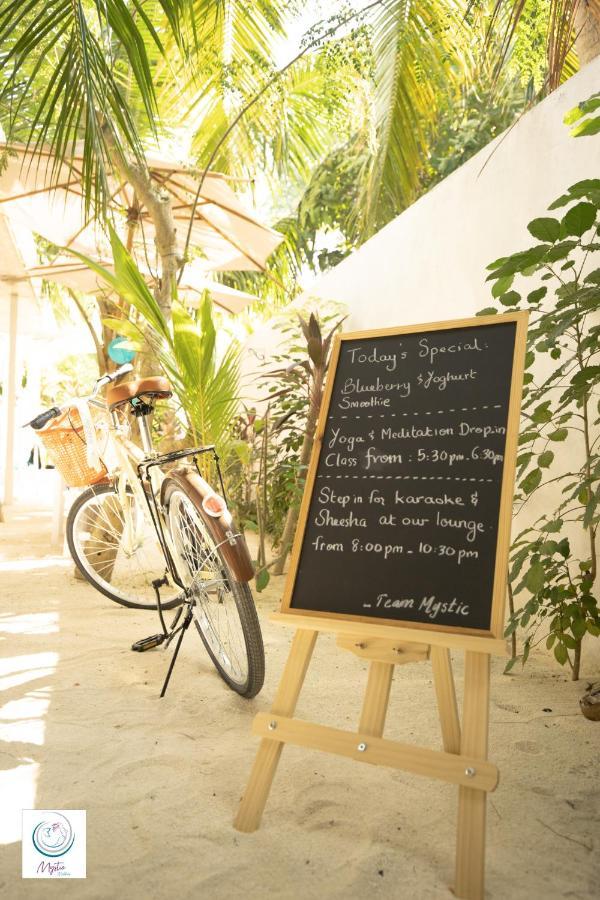 Today's Special:
Blueberry & Yoghurt
Smoothie
Yoga & Meditation Drop.in
Class from : 5:30pm - 6.30pm
Step in for karaoke &
Sheesha at our lounge.
from 8:00pm - 10:30pm
- Team Mystic
Mystic